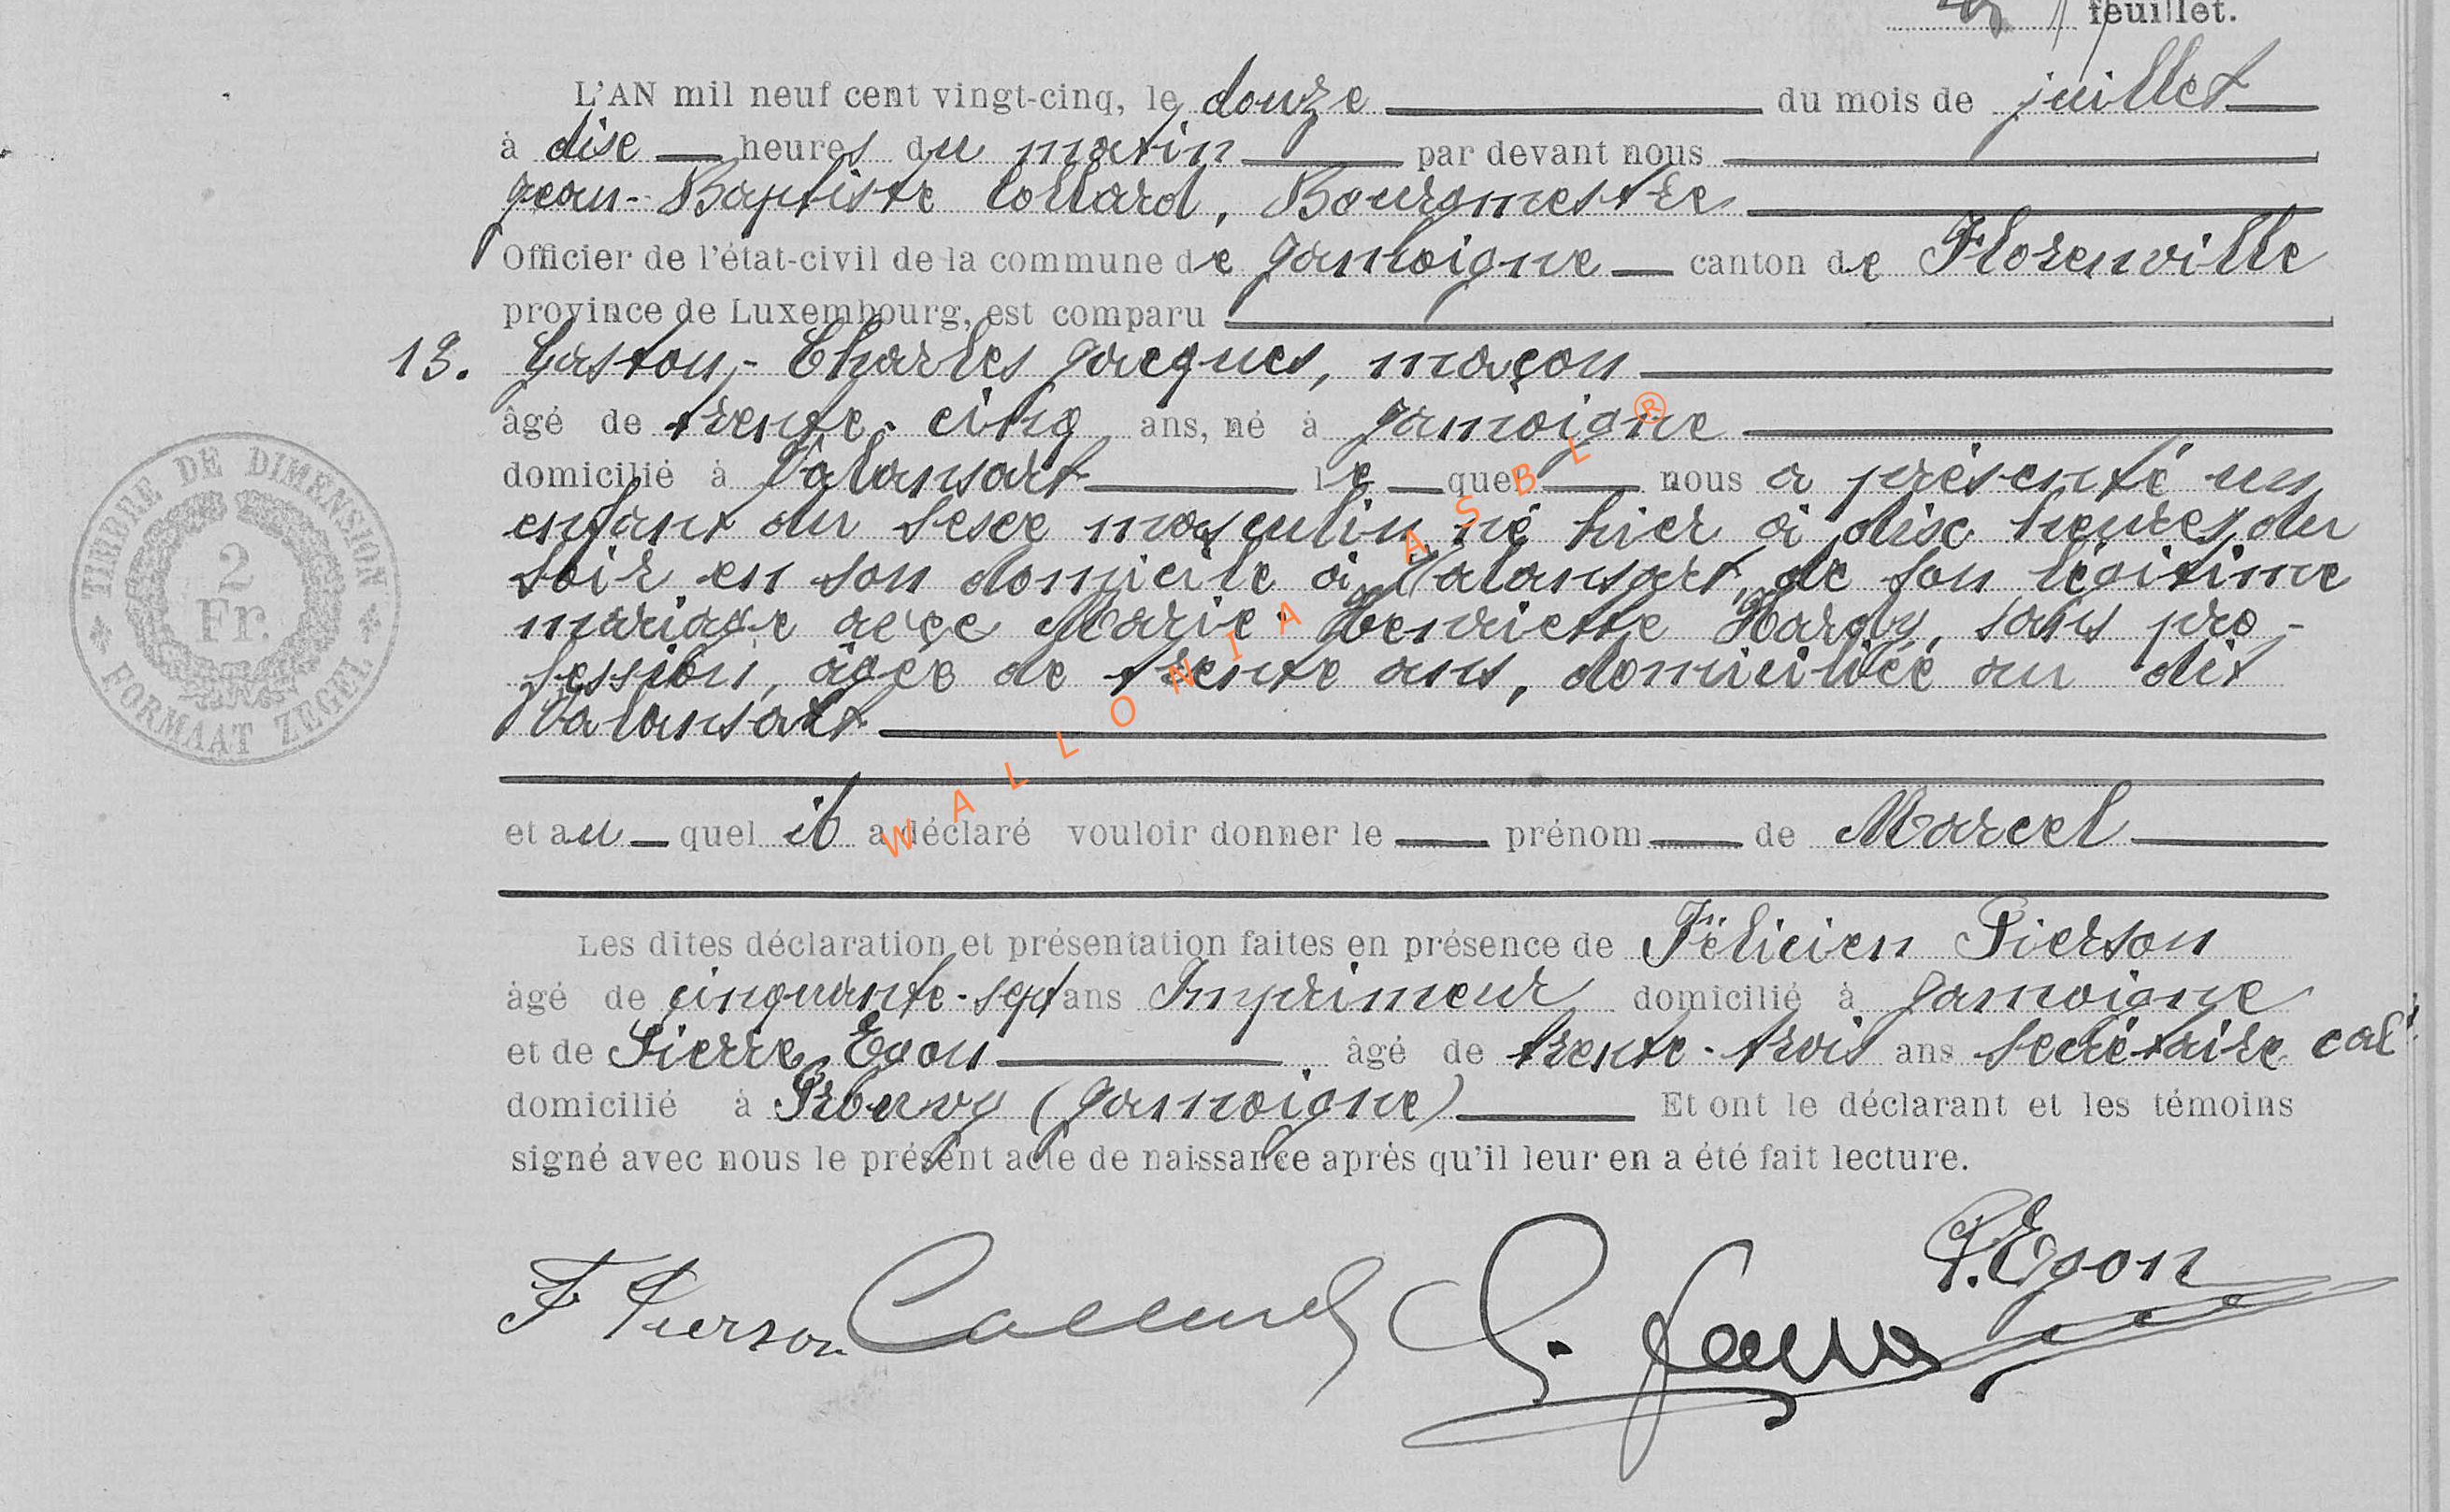 feuillet.
L'AN mil neuf cent vingt-cinq, le douze du mois de juillet
à dix heures du matin par devant nous
Jean-Baptiste Collard, Bourgmestre
Officier de l'état-civil de la commune de Jamoigne canton de Florenville
province de Luxembourg, est comparu
13. Gaston-Charles Jacques, maçon
âgé de trente-cinq ans, né à Jamoigne
domicilié à Valansart lequel nous a présenté un
enfant du sexe masculin né hier à dix heures du
soir en son domicile à Valansart, de son légitime
mariage avec Marie-Henriette Hardy, sans pro-
fession, âgée de trente ans, domiciliée au dit
Valansart
et auquel il a déclaré vouloir donner le prénom de Marcel
Les dites déclaration et présentation faites en présence de Félicien Pierson
âgé de cinquante-sept ans Imprimeur domicilié à Jamoigne
et de Pierre Egon âgé de trente-trois ans secrétaire cal
domicilié à Prouvy (Jamoigne) Et ont le déclarant et les témoins
signé avec nous le présent acte de naissance après qu'il leur en a été fait lecture.
F Pierson Collard G. Jacques P. Egon
TIMBRE DE DIMENSION
2
Fr.
FORMAAT ZEGEL
WALLONIA ASBL ®